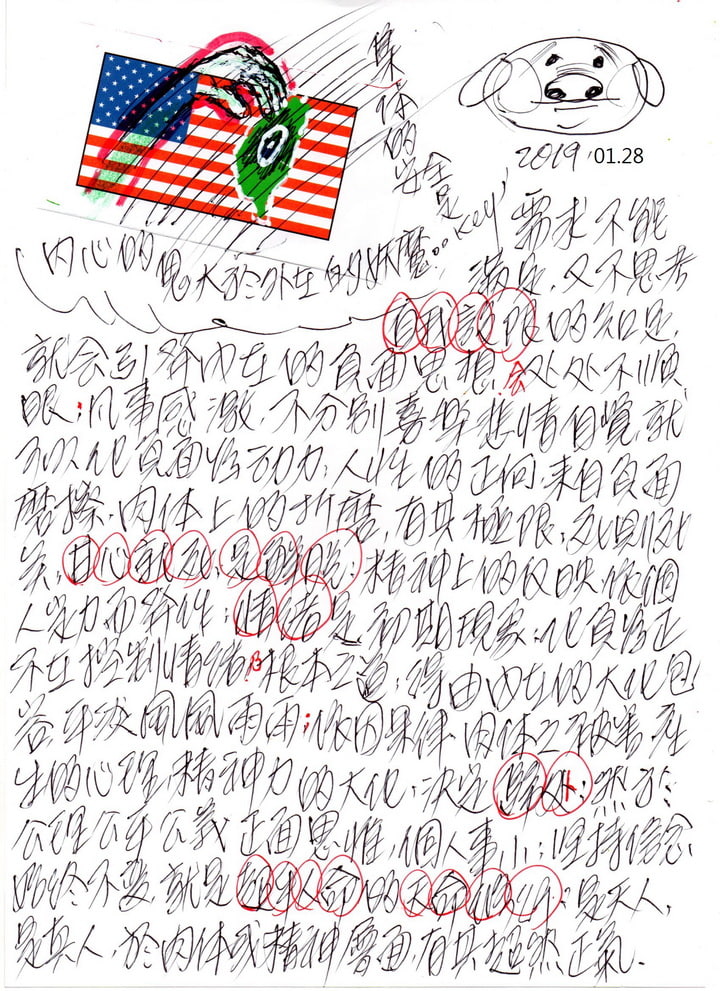 集体的安全是key,
2019, 01.28
内心的鬼大於外在的妖魔..
需求不能
滿足,又不思考
自我設限的知足,
就会引發内在的負面思想,会处处不順
眼;凡事感激,不分別喜樂悲情自覺,就
可以化負面為动力,人性的正向,来自負面
磨擦,肉体上的折磨,有其極限,
甘心就死,是解脱;精神上的反映依個
人定力而
情緒是初期現象,化負為正
不在控制情緒及根本之道;得由内在的大化包
容平淡風風雨雨;依因果律,肉体之被害,產
生的心理,精神力的大化,決定歸处;然於
公理公平公義正面思惟,個人事小;坚持信念
始终不变,就是超人命的天命
是天人,
是真人,於肉体或精神層面,有其超然正氣.